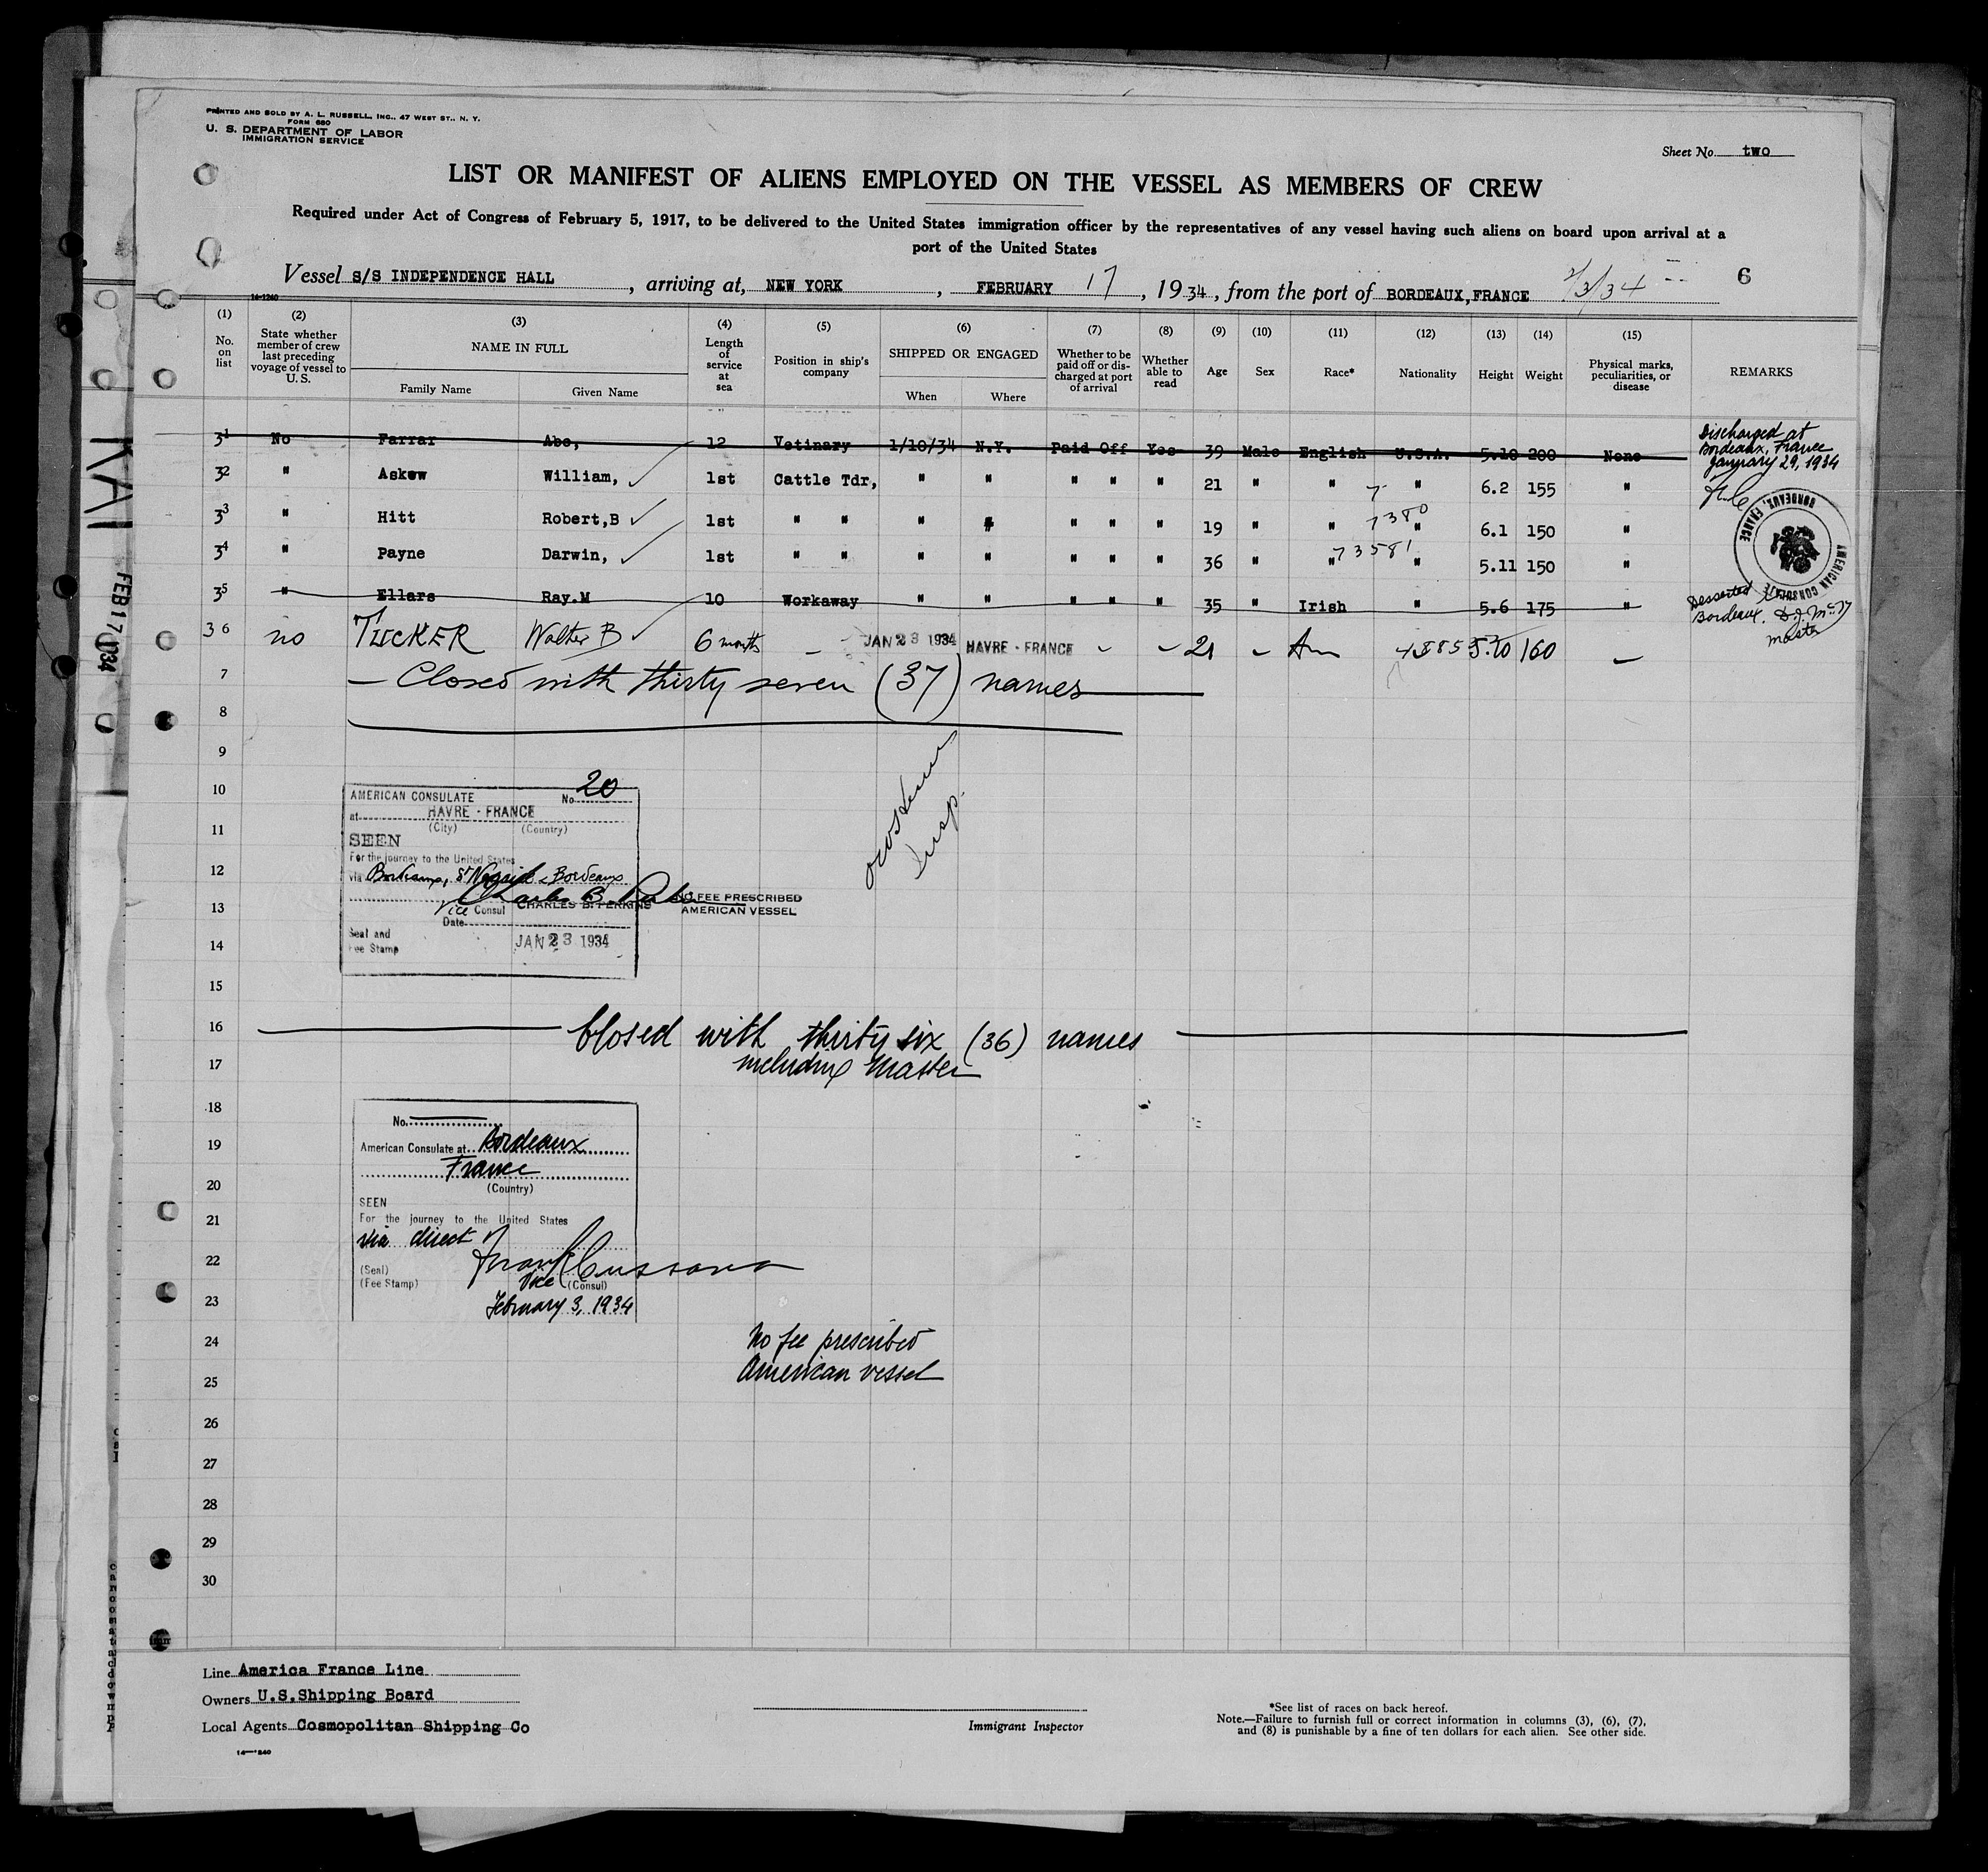 PRINTED AND SOLD BY A. L. RUSSELL, INC., 47 WEST ST., N. Y.
FORM 680
U. S. DEPARTMENT OF LABOR
IMMIGRATION SERVICE
Sheet No. two
LIST OR MANIFEST OF ALIENS EMPLOYED ON THE VESSEL AS MEMBERS OF CREW
Required under Act of Congress of February 5, 1917, to be delivered to the United States immigration officer by the representatives of any vessel having such aliens on board upon arrival at a
port of the United States
Vessel S/S INDEPENDENCE HALL, arriving at, NEW YORK, FEBRUARY 17, 1934, from the port of BORDEAUX, FRANCE 2/3/34 6
14-1240
(1) (2) (3) (4) (5) (6) (7) (8) (9) (10) (11) (12) (13) (14) (15)
No. on list
State whether member of crew last preceding voyage of vessel to U. S.
NAME IN FULL
Family Name
Given Name
Length of service at sea
Position in ship's company
SHIPPED OR ENGAGED
When
Where
Whether to be paid off or discharged at port of arrival
Whether able to read
Age
Sex
Race*
Nationality
Height
Weight
Physical marks, peculiarities, or disease
REMARKS
31 No Farrar Abe, 12 Vetinary 1/10/34 N.Y. Paid Off Yes 39 Male English U.S.A. 5.10 200 None
Discharged at
Bordeaux, France
January 29, 1934
32 " Askew William, 1st Cattle Tdr, " " " " " 21 " " 7 " 6.2 155 "
33 " Hitt Robert,B 1st " " " " " " " 19 " " 7380 " 6.1 150 "
34 " Payne Darwin, 1st " " " " " " " 36 " " 73581 " 5.11 150 "
BORDEAUX, FRANCE
AMERICAN CONSULATE
35 " Ellars Ray.M 10 Workaway " " " " " 35 " Irish " 5.6 175 "
Desserted
Bordeaux.
Master
36 no TUCKER Walter B 6 month – JAN 23 1934 HAVRE - FRANCE – – 21 – Am 5.10 160 –
7 — Closed with thirty seven (37) names
8
9
10
11
12
13
14
15
16
17
18
19
20
21
22
23
24
25
26
27
28
29
30
AMERICAN CONSULATE No. 20
at HAVRE - FRANCE
(City) (Country)
SEEN
For the journey to the United States
via Bordeaux
Vice Consul CHARLES B. PERKINS
NO FEE PRESCRIBED
AMERICAN VESSEL
Date
Seal and
Fee Stamp
JAN 23 1934
Insp.
Closed with thirty six (36) names
including Master
No.
American Consulate at Bordeaux
France
(Country)
SEEN
For the journey to the United States
via direct
(Seal)
(Fee Stamp)
Vice (Consul)
February 3, 1934
No fee prescribed
American vessel
KAI
FEB 17 1934
Line America France Line
Owners U.S.Shipping Board
Local Agents Cosmopolitan Shipping Co
Immigrant Inspector
*See list of races on back hereof.
Note.—Failure to furnish full or correct information in columns (3), (6), (7),
and (8) is punishable by a fine of ten dollars for each alien. See other side.
14—1240